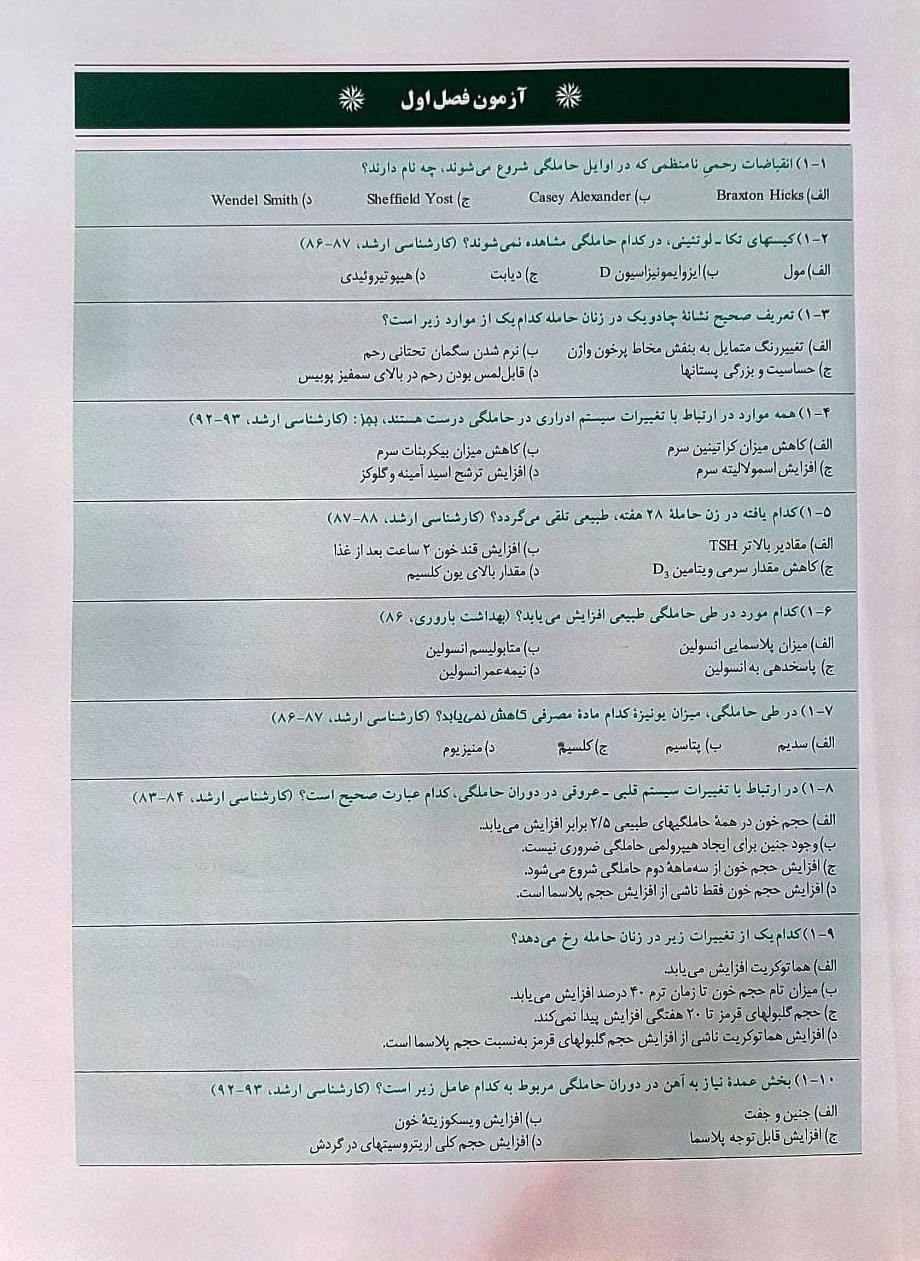 آزمون فصل اول
۱-۱) انقباضات رحمیِ نامنظمی که در اوایل حاملگی شروع می‌شوند، چه نام دارند؟
الف) Braxton Hicks ب) Casey Alexander ج) Sheffield Yost د) Wendel Smith
۱-۲) کیستهای تکا ـ لوتئینی، در کدام حاملگی مشاهده نمی‌شوند؟ (کارشناسی ارشد، ۸۷-۸۶)
الف) مول ب) ایزوایمونیزاسیون D ج) دیابت د) هیپوتیروئیدی
۱-۳) تعریف صحیح نشانهٔ چادویک در زنان حامله کدام‌یک از موارد زیر است؟
الف) تغییررنگ متمایل به بنفش مخاط پرخون واژن ب) نرم شدن سگمان تحتانی رحم
ج) حساسیت و بزرگی پستانها د) قابل‌لمس بودن رحم در بالای سمفیز پوبیس
۱-۴) همه موارد در ارتباط با تغییرات سیستم ادراری در حاملگی درست هستند، بجز: (کارشناسی ارشد، ۹۳-۹۲)
الف) کاهش میزان کراتینین سرم ب) کاهش میزان بیکربنات سرم
ج) افزایش اسمولالیته سرم د) افزایش ترشح اسید آمینه و گلوکز
۱-۵) کدام یافته در زن حاملهٔ ۲۸ هفته، طبیعی تلقی می‌گردد؟ (کارشناسی ارشد، ۸۸-۸۷)
الف) مقادیر بالاتر TSH ب) افزایش قند خون ۲ ساعت بعد از غذا
ج) کاهش مقدار سرمی ویتامین D₃ د) مقدار بالای یون کلسیم
۱-۶) کدام مورد در طی حاملگی طبیعی افزایش می‌یابد؟ (بهداشت باروری، ۸۶)
الف) میزان پلاسمایی انسولین ب) متابولیسم انسولین
ج) پاسخدهی به انسولین د) نیمه‌عمر انسولین
۱-۷) در طی حاملگی، میزان یونیزهٔ کدام مادهٔ مصرفی کاهش نمی‌یابد؟ (کارشناسی ارشد، ۸۷-۸۶)
الف) سدیم ب) پتاسیم ج) کلسیم د) منیزیوم
۱-۸) در ارتباط با تغییرات سیستم قلبی ـ عروقی در دوران حاملگی، کدام عبارت صحیح است؟ (کارشناسی ارشد، ۸۴-۸۳)
الف) حجم خون در همهٔ حاملگیهای طبیعی ۲/۵ برابر افزایش می‌یابد.
ب) وجود جنین برای ایجاد هیپرولمی حاملگی ضروری نیست.
ج) افزایش حجم خون از سه‌ماههٔ دوم حاملگی شروع می‌شود.
د) افزایش حجم خون فقط ناشی از افزایش حجم پلاسما است.
۱-۹) کدام‌یک از تغییرات زیر در زنان حامله رخ می‌دهد؟
الف) هماتوکریت افزایش می‌یابد.
ب) میزان تام حجم خون تا زمان ترم ۴۰ درصد افزایش می‌یابد.
ج) حجم گلبولهای قرمز تا ۲۰ هفتگی افزایش پیدا نمی‌کند.
د) افزایش هماتوکریت ناشی از افزایش حجم گلبولهای قرمز به‌نسبت حجم پلاسما است.
۱-۱۰) بخش عمدهٔ نیاز به آهن در دوران حاملگی مربوط به کدام عامل زیر است؟ (کارشناسی ارشد، ۹۳-۹۲)
الف) جنین و جفت ب) افزایش ویسکوزیتهٔ خون
ج) افزایش قابل توجه پلاسما د) افزایش حجم کلی اریتروسیتهای در گردش